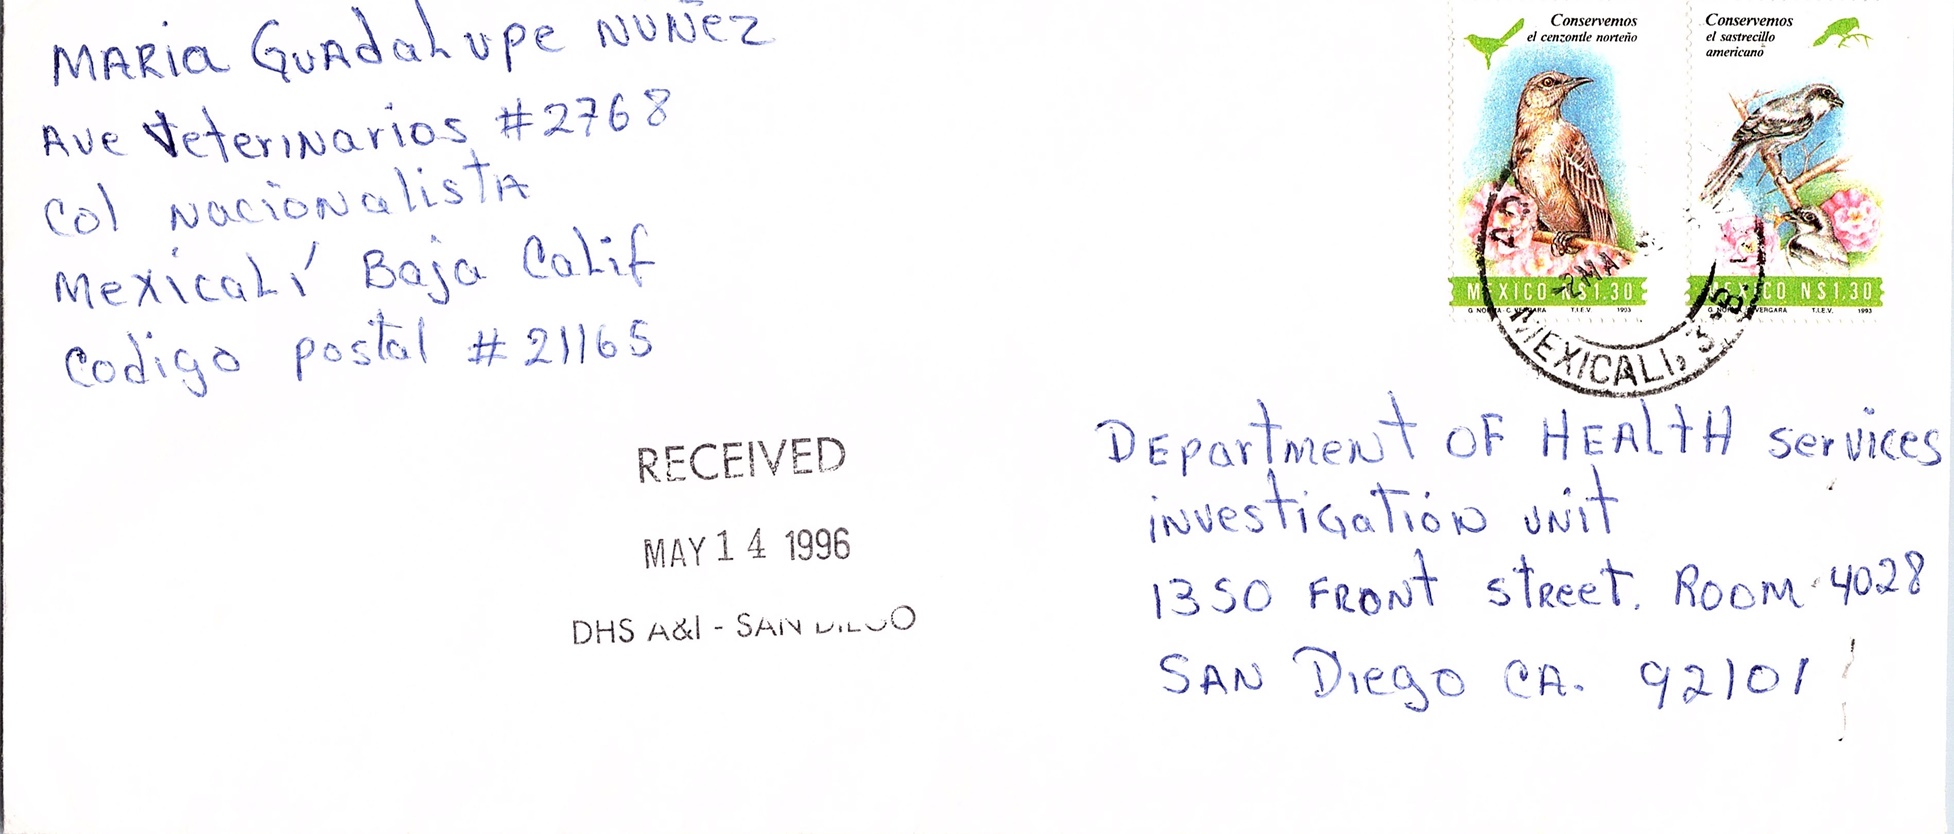 MARia GuadaLupe NUÑez
Ave Veterinarios #2768
Col Nacionalista
MexicaLí Baja Calif
Codigo postal #21165
Conservemos
el cenzontle norteño
MEXICO N$1.30
G. NORMA C. VERGARA T.I.E.V. 1993
Conservemos
el sastrecillo
americano
MEXICO N$1.30
VERGARA T.I.E.V. 1993
MEXICALI, B.
RECEIVED
MAY 14 1996
DHS A&I - SAN DIEGO
DEpartment OF HEALtH services
investigatión unit
1350 FRONt street. ROOM 4028
SAN Diego CA. 92101